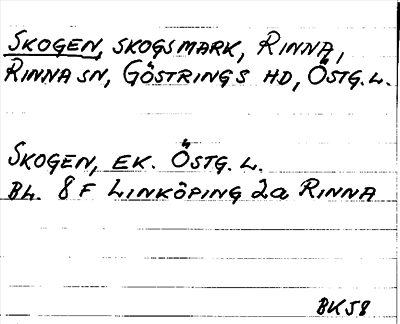 SKOGEN, SKOGSMARK, RINNA,
RINNA SN, GÖSTRINGS HD, ÖSTG. L.
SKOGEN, EK. ÖSTG. L.
BL. 8 F LINKÖPING 2a RINNA
BK58